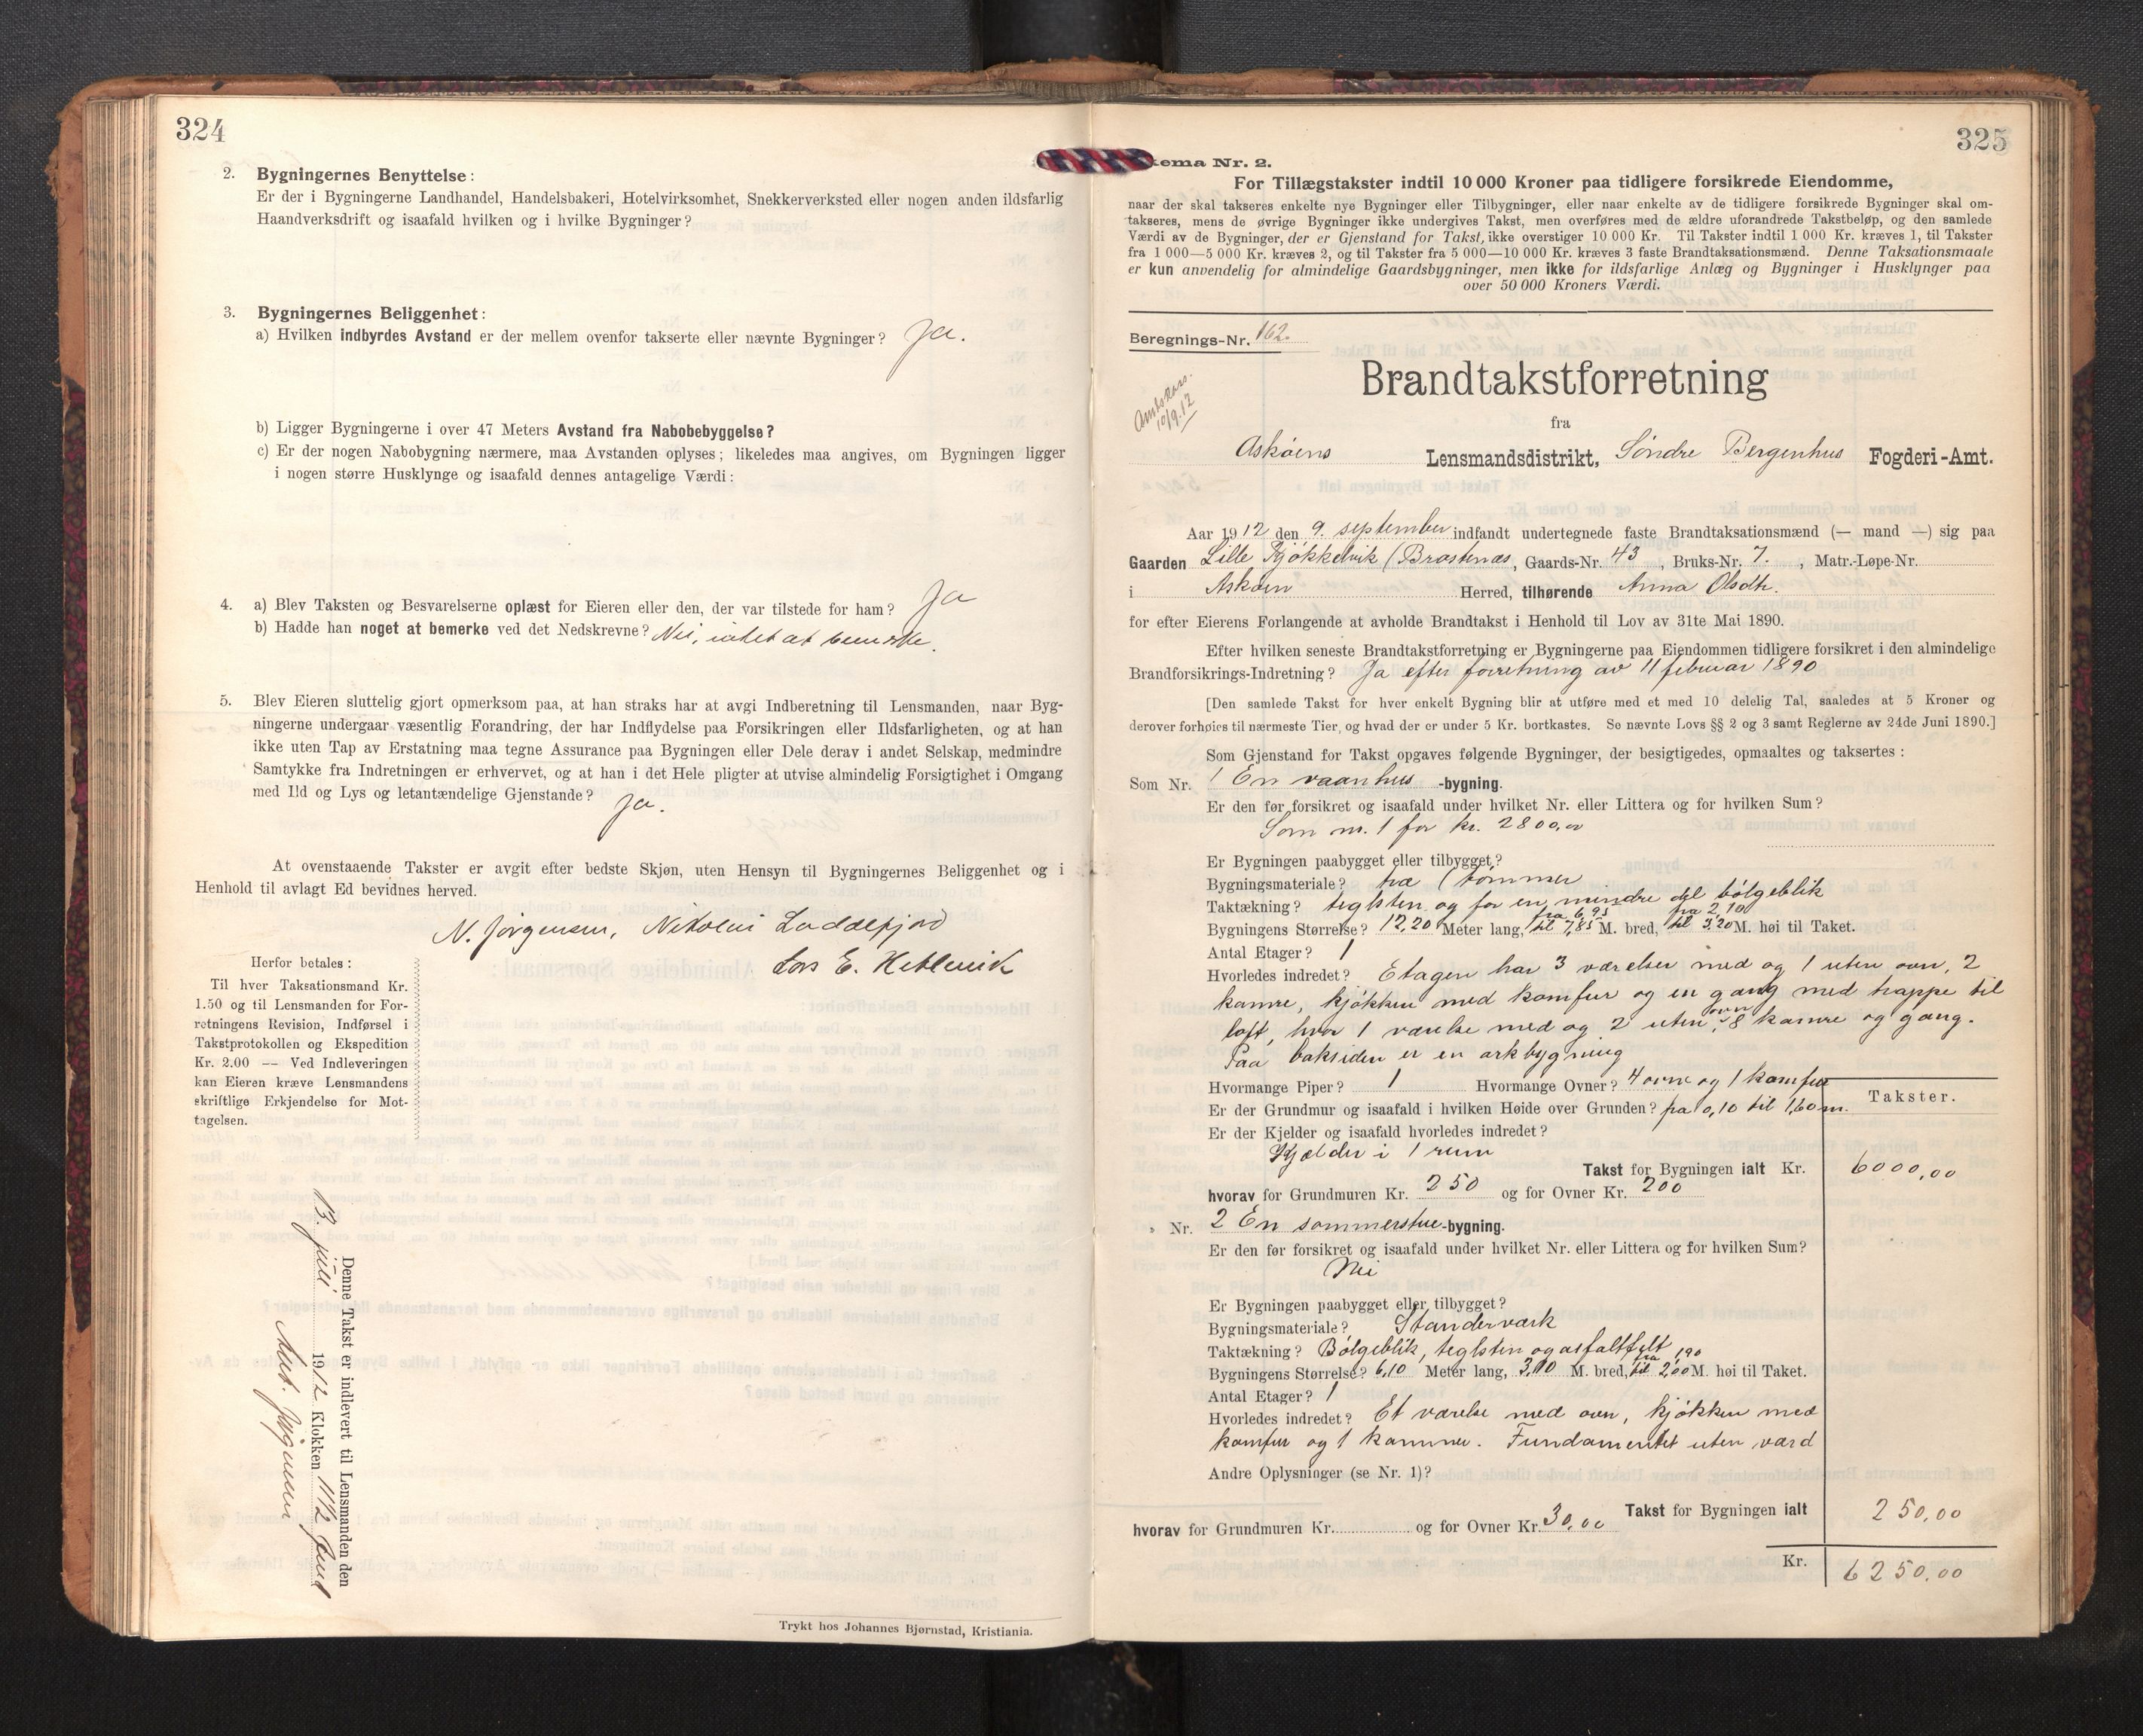 324
2. Bygningernes Benyttelse:
Er der i Bygningerne Landhandel, Handelsbakeri, Hotelvirksomhet, Snekkerverksted eller nogen anden ildsfarlig
Haandverksdrift og isaafald hvilken og i hvilke Bygninger?
3. Bygningernes Beliggenhet:
a) Hvilken indbyrdes Avstand er der mellem ovenfor takserte eller nævnte Bygninger? Ja.
b) Ligger Bygningerne i over 47 Meters Avstand fra Nabobebyggelse?
c) Er der nogen Nabobygning nærmere, maa Avstanden oplyses; likeledes maa angives, om Bygningen ligger
i nogen større Husklynge og isaafald dennes antagelige Værdi:
4. a) Blev Taksten og Besvarelserne oplæst for Eieren eller den, der var tilstede for ham? Ja
b) Hadde han noget at bemerke ved det Nedskrevne? Nei, intet at bemerke.
5. Blev Eieren sluttelig gjort opmerksom paa, at han straks har at avgi Indberetning til Lensmanden, naar Byg-
ningerne undergaar væsentlig Forandring, der har Indflydelse paa Forsikringen eller Ildsfarligheten, og at han
ikke uten Tap av Erstatning maa tegne Assurance paa Bygningen eller Dele derav i andet Selskap, medmindre
Samtykke fra Indretningen er erhvervet, og at han i det Hele pligter at utvise almindelig Forsigtighet i Omgang
med Ild og Lys og letantændelige Gjenstande? Ja.
At ovenstaaende Takster er avgit efter bedste Skjøn, uten Hensyn til Bygningernes Beliggenhet og i
Henhold til avlagt Ed bevidnes herved.
N. Jørgensen, Nikolai Laddefjord
Lars E.
Herfor betales:
Til hver Taksationsmand Kr.
1.50 og til Lensmanden for For-
retningens Revision, Indførsel i
Takstprotokollen og Ekspedition
Kr. 2.00 — Ved Indleveringen
kan Eieren kræve Lensmandens
skriftlige Erkjendelse for Mot-
tagelsen.
Denne Takst er indlevert til Lensmanden den
13 juli 1912 Klokken 11 1/2
Jørgensen
Trykt hos Johannes Bjørnstad, Kristiania.
325
kema Nr. 2.
For Tillægstakster indtil 10 000 Kroner paa tidligere forsikrede Eiendomme,
naar der skal takseres enkelte nye Bygninger eller Tilbygninger, eller naar enkelte av de tidligere forsikrede Bygninger skal om-
takseres, mens de øvrige Bygninger ikke undergives Takst, men overføres med de ældre uforandrede Takstbeløp, og den samlede
Værdi av de Bygninger, der er Gjenstand for Takst, ikke overstiger 10 000 Kr. Til Takster indtil 1 000 Kr. kræves 1, til Takster
fra 1 000—5 000 Kr. kræves 2, og til Takster fra 5 000—10 000 Kr. kræves 3 faste Brandtaksationsmænd. Denne Taksationsmaate
er kun anvendelig for almindelige Gaardsbygninger, men ikke for ildsfarlige Anlæg og Bygninger i Husklynger paa
over 50 000 Kroners Værdi.
Beregnings-Nr. 162.
10/9.12
Brandtakstforretning
fra
Askøens Lensmandsdistrikt, Søndre Bergenhus Fogderi-Amt.
Aar 1912 den 9. september indfandt undertegnede faste Brandtaksationsmænd (— mand —) sig paa
Gaarden Lille Kjøkkelvik (Brastenæs, Gaards-Nr. 43, Bruks-Nr. 7., Matr.-Løpe-Nr.
i Askøen Herred, tilhørende Anna Olsdtr.
for efter Eierens Forlangende at avholde Brandtakst i Henhold til Lov av 31te Mai 1890.
Efter hvilken seneste Brandtakstforretning er Bygningerne paa Eiendommen tidligere forsikret i den almindelige
Brandforsikrings-Indretning? Ja efter forretning av 11 februar 1890
[Den samlede Takst for hver enkelt Bygning blir at utføre med et med 10 delelig Tal, saaledes at 5 Kroner og
derover forhøies til nærmeste Tier, og hvad der er under 5 Kr. bortkastes. Se nævnte Lovs §§ 2 og 3 samt Reglerne av 24de Juni 1890.]
Som Gjenstand for Takst opgaves følgende Bygninger, der besigtigedes, opmaaltes og taksertes:
Som Nr. 1 En vaanhus -bygning.
Er den før forsikret og isaafald under hvilket Nr. eller Littera og for hvilken Sum?
Som nr. 1 for kr. 2800,00
Er Bygningen paabygget eller tilbygget?
Bygningsmateriale? træ (tømmer
Taktækning? teglsten og for en mindre del bølgeblik
Bygningens Størrelse? 12,20 Meter lang, fra 6,95 til 7,85 M. bred, fra 2,10 til 3,20 M. høi til Taket.
Antal Etager? 1
Hvorledes indredet? Etagen har 3 værelser med og 1 uten ovn, 2
kamre, kjøkken med komfur og en gang med trappe til
loft, hvor 1 værelse med og 2 uten ovn, 8 kamre og gang.
Paa baksiden er en arkbygning
Hvormange Piper? 1 Hvormange Ovner? 4 ovne og 1 komfur
Er der Grundmur og isaafald i hvilken Høide over Grunden? fra 0,10 til 1,60 m.
Er der Kjelder og isaafald hvorledes indredet?
Kjælder i 1 rum
Takster.
Takst for Bygningen ialt Kr. 6000,00
hvorav for Grundmuren Kr. 250 og for Ovner Kr. 200
„ Nr. 2 En sommerstue-bygning.
Er den før forsikret og isaafald under hvilket Nr. eller Littera og for hvilken Sum?
Nei
Er Bygningen paabygget eller tilbygget?
Bygningsmateriale? Standerværk
Taktækning? Bølgeblik, teglsten og asfaltfilt
Bygningens Størrelse? 6,10 Meter lang, 3,10 M. bred, fra 1,90 til 2,00 M. høi til Taket.
Antal Etager? 1
Hvorledes indredet? Et værelse med ovn, kjøkken med
komfur og 1 kammer. Fundamentet uten værd
Andre Oplysninger (se Nr. 1)?
Takst for Bygningen ialt 250,00
hvorav for Grundmuren Kr. og for Ovner Kr. 30,00
Kr. 6250,00